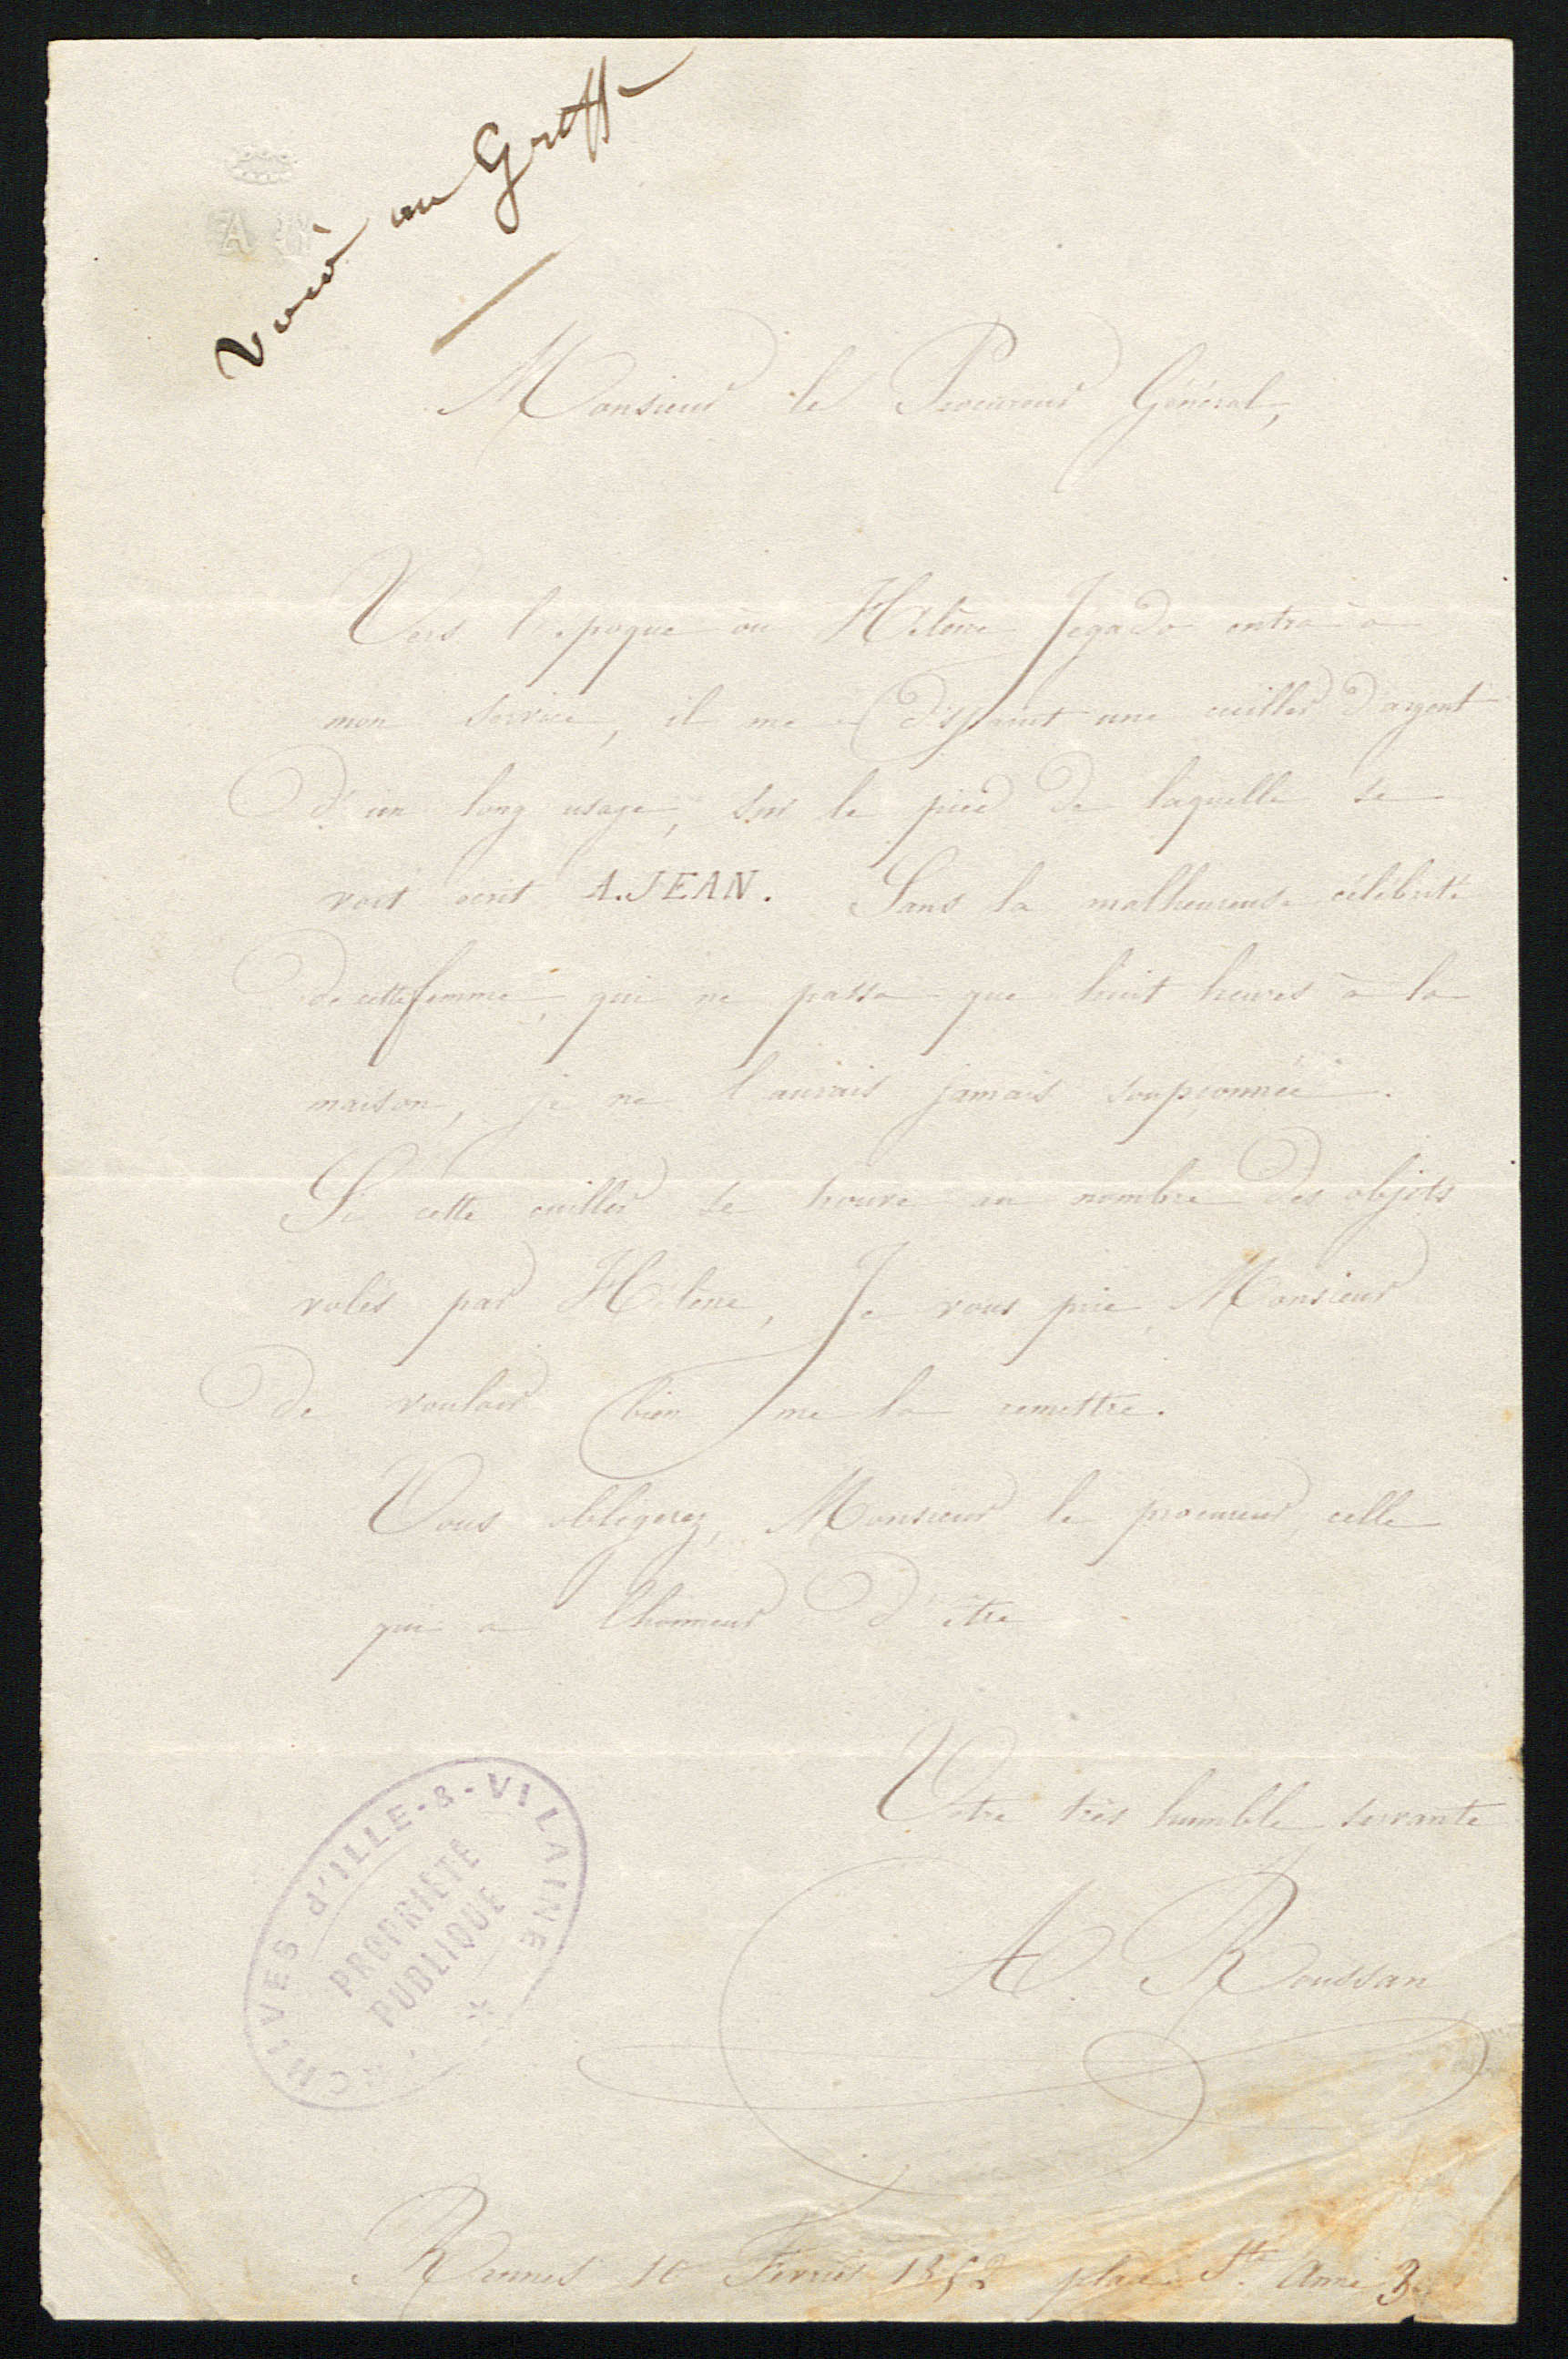 Voir au Greffe
A
Monsieur le Procureur Général,
Vers l'époque où Hélène Jegado entra à
mon service, il me disparut une cuiller d'argent
d'un long usage, sur le pied de laquelle se
voit écrit A.JEAN. Sans la malheureuse célébrité
de cette femme, qui ne passa que huit heures à la
maison, je ne l'aurais jamais soupçonnée.
Si cette cuiller se trouve au nombre des objets
volés par Hélène, Je vous prie, Monsieur
de vouloir bien me la remettre.
Vous obligerez, Monsieur le procureur, celle
qui a l'honneur d'être
Votre très humble servante
A. Roussan
ARCHIVES d'ILLE-&-VILAINE
PROPRIÉTÉ
PUBLIQUE
Rennes 10 Fevrier 1852 place Ste Anne 3